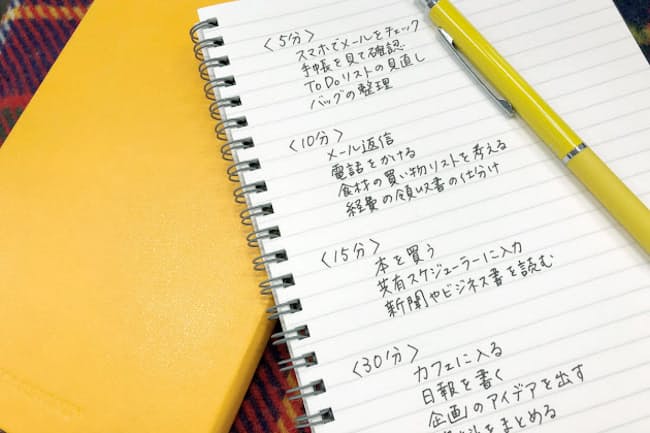 〈5分〉
スマホでメールをチェック
手帳を見て確認
ToDoリストの見直し
バッグの整理
〈10分〉
メール返信
電話をかける
食材の買い物リストを考える
経費の領収書の仕分け
〈15分〉
本を買う
共有スケジューラーに入力
新聞やビジネス書を読む
〈30分〉
カフェに入る
日報を書く
企画のアイデアを出す
をまとめる